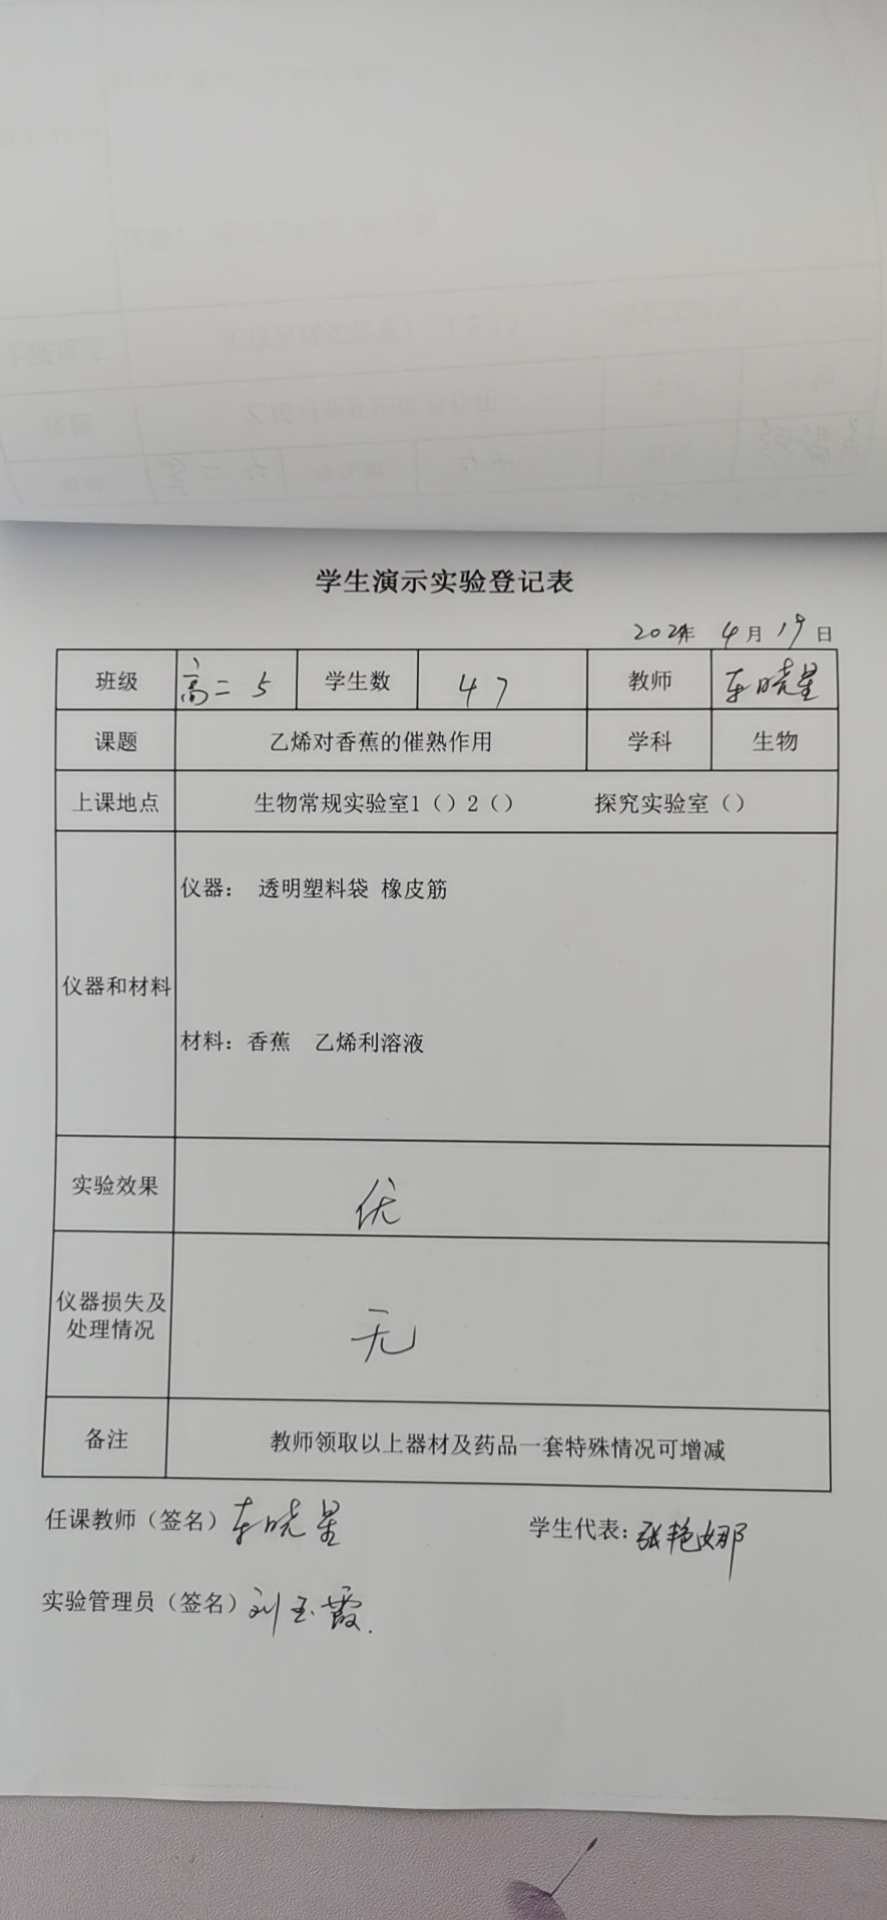 学生演示实验登记表
2024年 4月19日
班级 高二5 学生数 47 教师 车晓星
课题 乙烯对香蕉的催熟作用 学科 生物
上课地点 生物常规实验室1（）2（） 探究实验室（）
仪器： 透明塑料袋 橡皮筋
仪器和材料
材料：香蕉 乙烯利溶液
实验效果 优
仪器损失及
处理情况 无
备注 教师领取以上器材及药品一套特殊情况可增减
任课教师（签名）车晓星 学生代表：张艳娜
实验管理员（签名）刘玉霞.